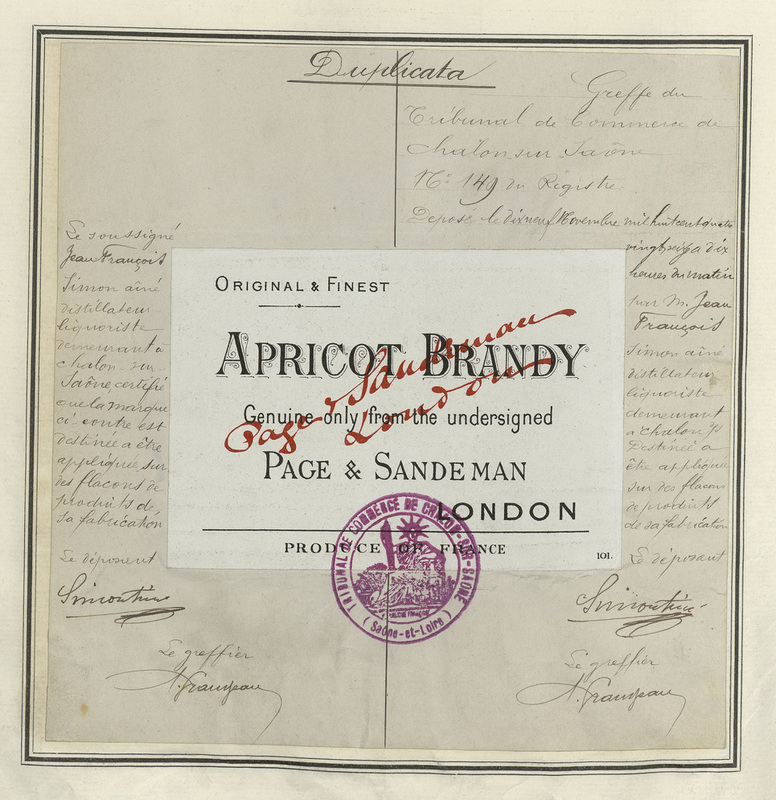 Duplicata
Greffe du
Tribunal de Commerce de
Chalon sur Saône
No. 149 du Registre
Déposé le dix neuf Novembre mil huit cent quatre
vingt seize a dix
heures du matin
par M. Jean
François
Simon aîné
distillateur
liquoriste
demeurant
à Chalon s/s
Destinée a
être appliquée
sur des flacons
de produits
de sa fabrication
Le déposant
Simon aîné
Le greffier
A. Granjean
Le soussigné
Jean François
Simon aîné
distillateur
liquoriste
demeurant à
Chalon-sur-
Saône certifie
que la marque
ci contre est
destinée a être
appliquée sur
des flacons de
produits de
sa fabrication
Le déposant
Simon aîné
Le greffier
A. Granjean
ORIGINAL & FINEST
APRICOT BRANDY
Page & Sandeman
London
Genuine only from the undersigned
PAGE & SANDEMAN
LONDON
PRODUCE OF FRANCE
101.
TRIBUNAL DE COMMERCE DE CHALON-SUR-SAÔNE
(Saône-et-Loire)